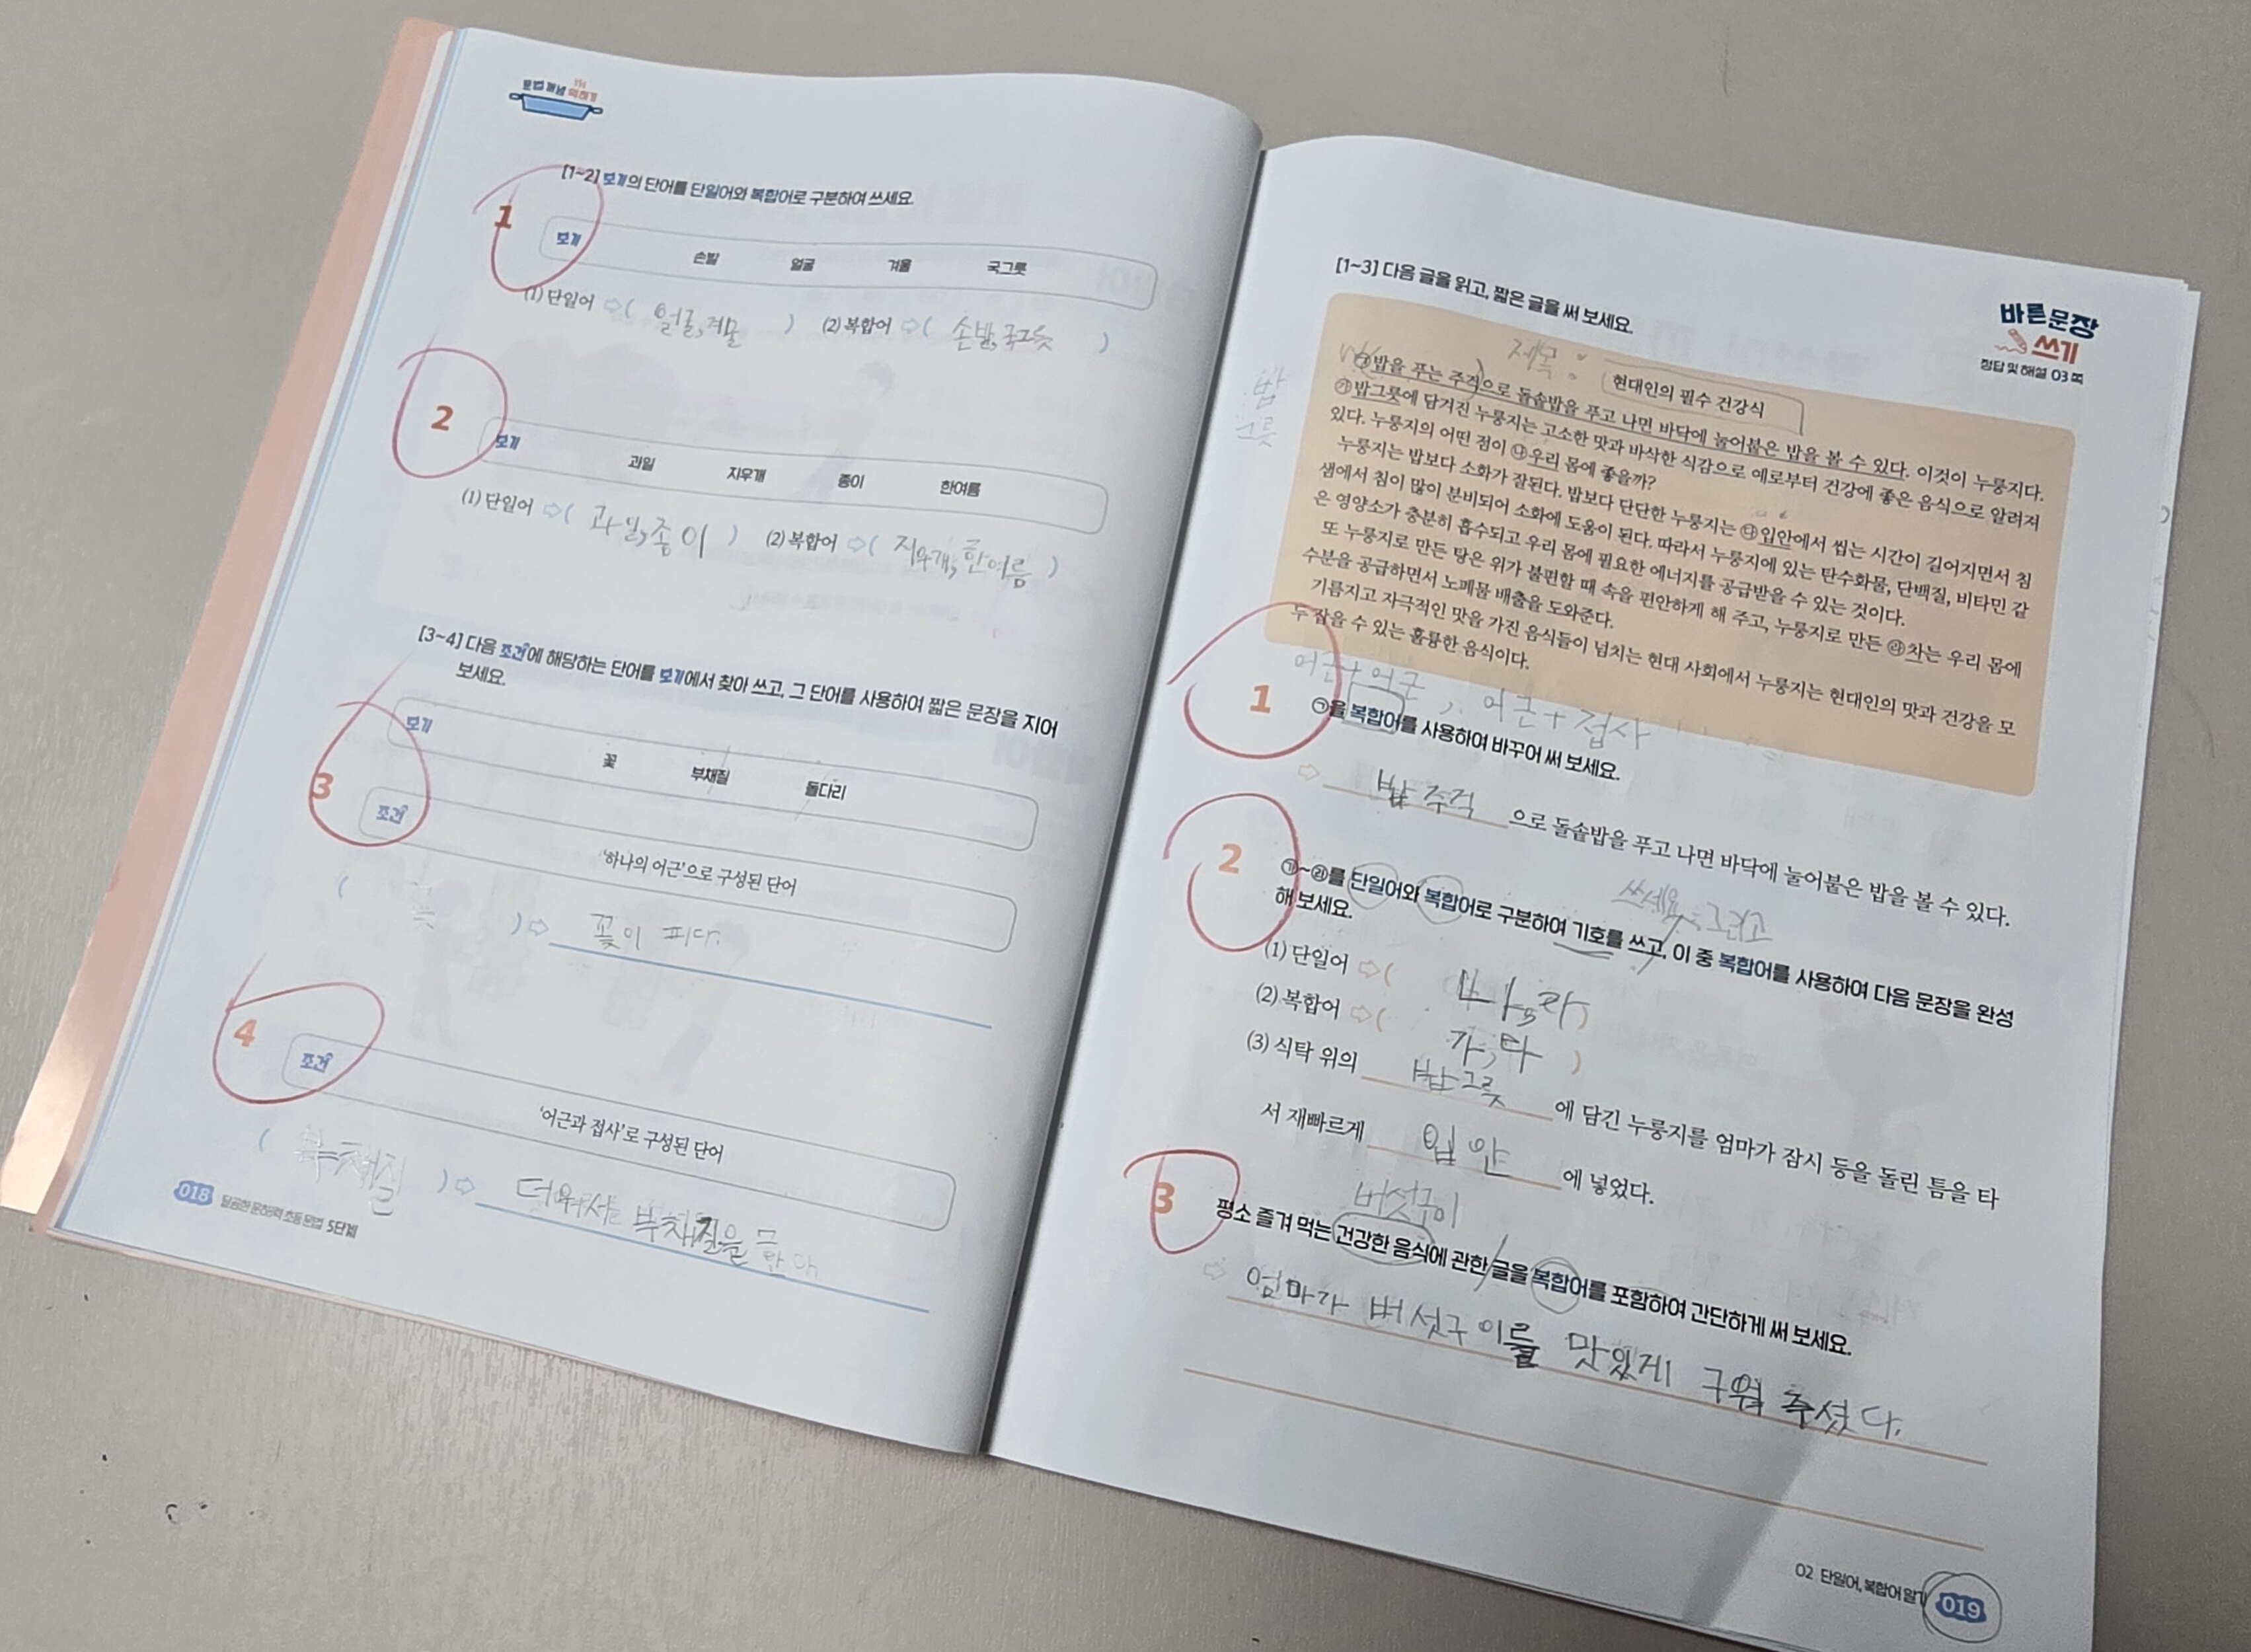 문법 개념 익히기
[1~2] 보기의 단어를 단일어와 복합어로 구분하여 쓰세요.
1
보기
손발 얼굴 겨울 국그릇
(1) 단일어 ⇨ ( 얼굴, 겨울 ) (2) 복합어 ⇨ ( 손발, 국그릇 )
2
보기
과일 지우개 종이 한여름
(1) 단일어 ⇨ ( 과일, 종이 ) (2) 복합어 ⇨ ( 지우개, 한여름 )
[3~4] 다음 조건에 해당하는 단어를 보기에서 찾아 쓰고, 그 단어를 사용하여 짧은 문장을 지어
보세요.
보기
꽃 부채질 돌다리
3
조건
'하나의 어근'으로 구성된 단어
( ) ⇨ 꽃이 피다.
4
조건
'어근과 접사'로 구성된 단어
( 부채질 ) ⇨ 더워서 부채질을 한다.
018 달곰한 문해력 초등 문법 5단계
[1~3] 다음 글을 읽고, 짧은 글을 써 보세요.
바른 문장
쓰기
정답 및 해설 03쪽
제목:
현대인의 필수 건강식
밥
그릇
㉠밥을 푸는 주걱으로 돌솥밥을 푸고 나면 바닥에 눌어붙은 밥을 볼 수 있다. 이것이 누룽지다.
㉮밥그릇에 담겨진 누룽지는 고소한 맛과 바삭한 식감으로 예로부터 건강에 좋은 음식으로 알려져
있다. 누룽지의 어떤 점이 ㉯우리 몸에 좋을까?
누룽지는 밥보다 소화가 잘된다. 밥보다 단단한 누룽지는 ㉰입안에서 씹는 시간이 길어지면서 침
샘에서 침이 많이 분비되어 소화에 도움이 된다. 따라서 누룽지에 있는 탄수화물, 단백질, 비타민 같
은 영양소가 충분히 흡수되고 우리 몸에 필요한 에너지를 공급받을 수 있는 것이다.
또 누룽지로 만든 탕은 위가 불편할 때 속을 편안하게 해 주고, 누룽지로 만든 ㉱차는 우리 몸에
수분을 공급하면서 노폐물 배출을 도와준다.
기름지고 자극적인 맛을 가진 음식들이 넘치는 현대 사회에서 누룽지는 현대인의 맛과 건강을 모
두 잡을 수 있는 훌륭한 음식이다.
어근+어근, 어근+접사
1
㉠을 복합어를 사용하여 바꾸어 써 보세요.
⇨ 밥주걱 으로 돌솥밥을 푸고 나면 바닥에 눌어붙은 밥을 볼 수 있다.
쓰세요. 그리고
2
㉮~㉱를 단일어와 복합어로 구분하여 기호를 쓰고, 이 중 복합어를 사용하여 다음 문장을 완성
해 보세요.
(1) 단일어 ⇨ ( 나, 라 )
(2) 복합어 ⇨ ( 가, 다 )
(3) 식탁 위의 밥그릇 에 담긴 누룽지를 엄마가 잠시 등을 돌린 틈을 타
서 재빠르게 입안 에 넣었다.
버섯구이
3
평소 즐겨 먹는 건강한 음식에 관한 글을 복합어를 포함하여 간단하게 써 보세요.
⇨ 엄마가 버섯구이를 맛있게 구워 주셨다.
02 단일어, 복합어 알기 019